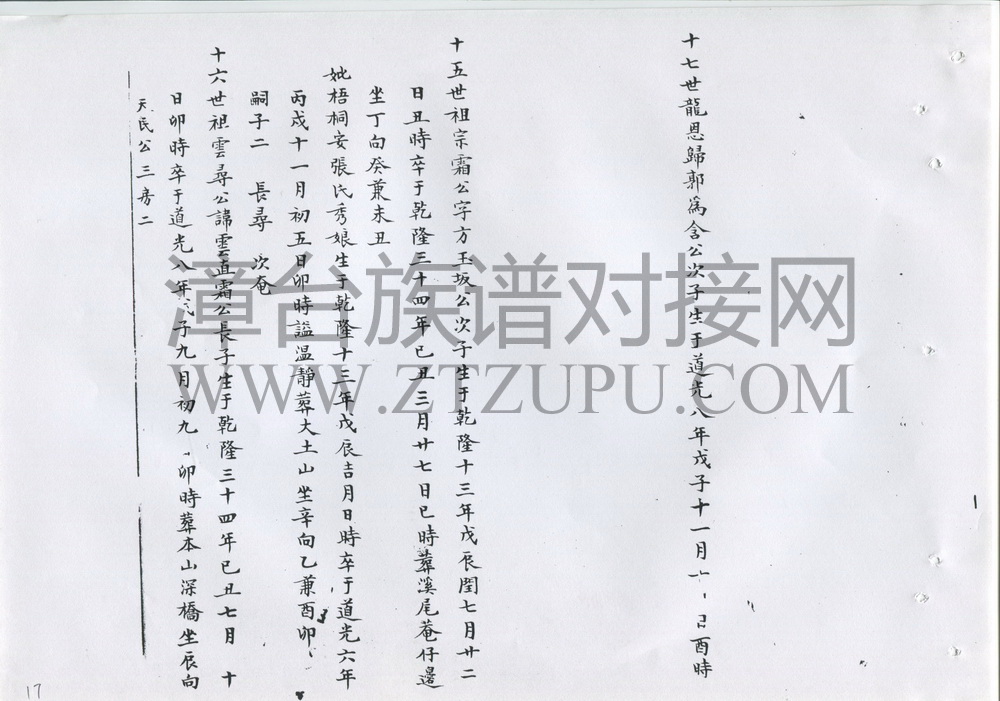 十七世龍恩歸郭為含公次子生于道光八年戊子十一月十 日酉時
十五世祖宗霜公字方玉坂公次子生于乾隆十三年戊辰閏七月廿二
日丑時卒于乾隆三十四年已丑三月廿七日巳時葬溪尾菴仔邊
坐丁向癸兼未丑
妣梧桐安張氏秀娘生于乾隆十三年戊辰吉月日時卒于道光六年
丙戌十一月初五日卯時謚温靜葬大土山坐辛向乙兼酉卯
嗣子二 長尋 次奄
十六世祖雲尋公諱雲直霜公長子生于乾隆三十四年已丑七月 十
日卯時卒于道光八年戊子九月初九 卯時葬本山深橋坐辰向
天民公三房二
17
漳台族谱对接网
WWW.ZTZUPU.COM